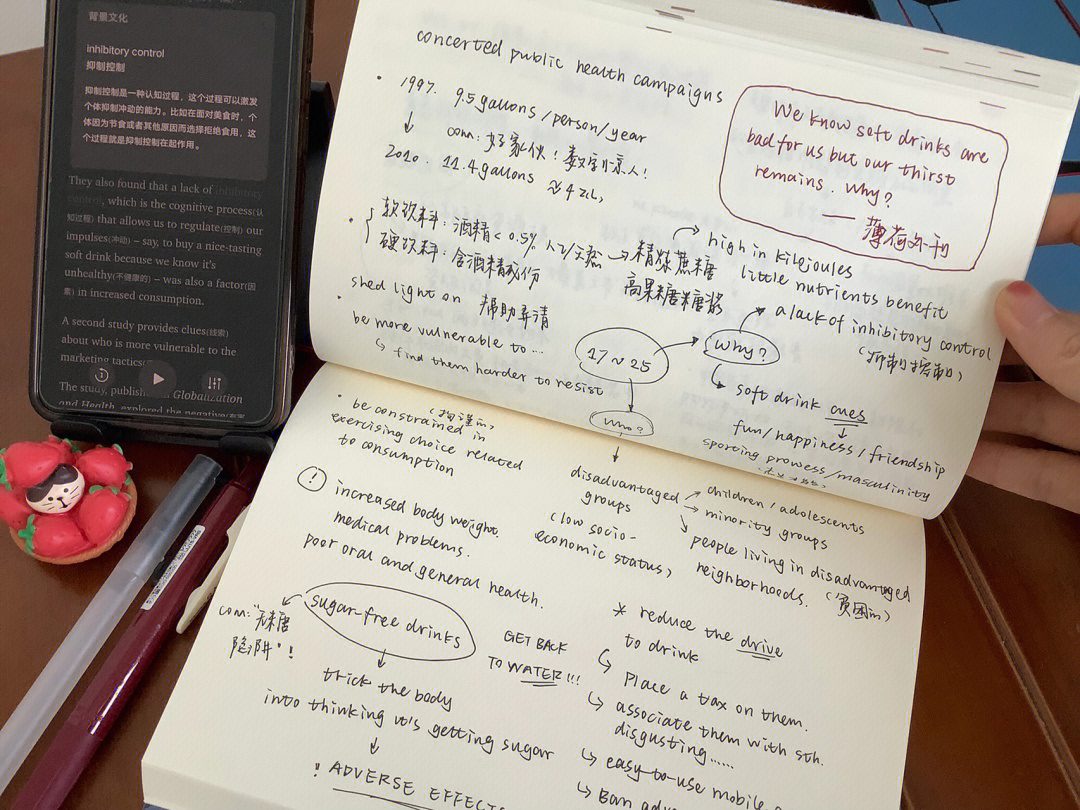 背景文化
inhibitory control
抑制控制
抑制控制是一种认知过程，这个过程可以激发
个体抑制冲动的能力。比如在面对美食时，个
体因为节食或者其他原因而选择拒绝食用，这
个过程就是抑制控制在起作用。
They also found that a lack of inhibitory
control, which is the cognitive process(认
知过程) that allows us to regulate(控制) our
impulses(冲动) – say, to buy a nice-tasting
soft drink because we know it's
unhealthy(不健康的) – was also a factor(因
素) in increased consumption.
A second study provides clues(线索)
about who is more vulnerable to the
marketing tactics
The study, publish Globalization
and Health, explored the negative(有害
concerted public health campaigns
We know soft drinks are
bad for us but our thirst
remains. Why?
—— 薄荷外刊
• 1997. 9.5 gallons/person/year
↓ com: 好家伙！数字惊人！
2010. 11.4 gallons ≈
• 软饮料：酒精<0.5% 人工/天然 → 精炼蔗糖
硬饮料：含酒精成份
高果糖糖浆
high in kilojoules
little nutrients benefit
shed light on 帮助弄清
be more vulnerable to ...
↳ find them harder to resist
17~25
Why?
a lack of inhibitory control
(抑制控制)
soft drink cues
↓
fun/happiness/friendship
sporting prowess/masculinity
Who?
• be constrained in
(拘谨的)
exercising choice related
to consumption
disadvantaged
groups
(low socio-
economic status)
→ children/adolescents
→ minority groups
people living in disadvantaged
neighborhoods.
(贫困的)
! increased body weight.
medical problems.
poor oral and general health.
sugar-free drinks
com: "无糖
陷阱"!
GET BACK
TO WATER!!!
↓
trick the body
into thinking it's getting sugar
↓
! ADVERSE EFFECTS
* reduce the drive
to drink
↳ Place a tax on them.
↳ associate them with sth.
disgusting......
↳ easy-to-use mobile
↳ Ban